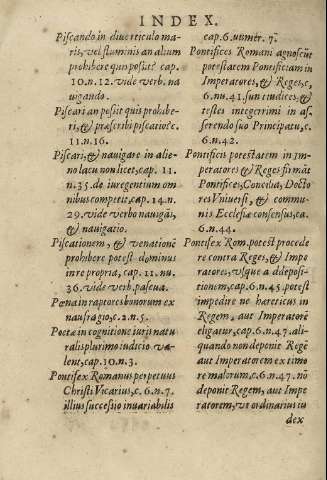 INDEX.
Piscando in diuerticulo ma-
ris, vel fluminis an alium
prohibere quis possit? cap.
10.n.12. vide verb. na
uigando.
Piscari an possit quis prohibe-
ri, & præscribi piscatio? c.
11.n.16.
Piscari, & nauigare in alie-
no lacu non licet, cap. 11.
n.35. de iuregentium om
nibus competit, cap. 14.n
29. vide verbo nauigās,
& nauigatio.
Piscationem, & venationē
prohibere potest dominus
in re propria, cap. 11. nu.
36. vide verb. pascua.
Pœna in raptores bonorum ex
naufragio, c.2.n.5.
Poetæ in cognitione iuris natu
ralis plurimo iudicio va-
lent, cap. 10.n.3.
Pontifex Romanus perpetuus
Christi Vicarius, c.6.n.7.
illius successio inuariabilis
cap.6. nu.
Pontifices Romani agnoscūt
potestatem Pontificiam in
Imperatores, & Reges, c,
6.nu.41. sun tiudices, &
testes integerrimi in as-
serendo suo Principatu, c.
6.n.42.
Pontificis potestatem in Im-
peratores & Reges firmāt
Pontifices, Concilia, Docto
res Vniuersi, & commu-
nis Ecclesiæ consensus, ca.
6.n.44.
Pontifex Rom. potest procede
re contra Reges, & Impe
ratores, vsque a ddeposi-
tionem, cap.6.n.45. potest
impedire ne hæreticus in
Regem, aut Imperatorē
eligatur, cap.6.n.47. ali-
quando non deponit Regē
aut Imperatorem ex timo
re malorum, c.6.n.47. nō
deponit Regem, aut Impe
ratorem, vt ordinarius iu
dex